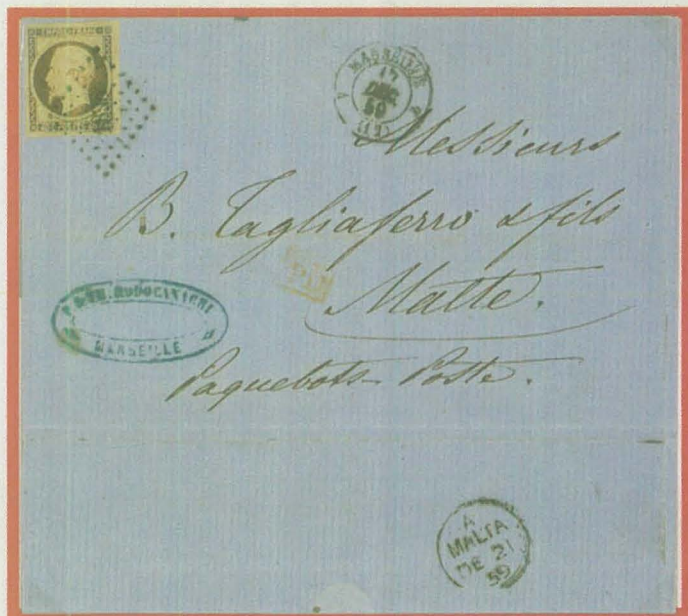 EMPIRE FRANC
MARSEILLE
17
DEC
59
(12)
Messieurs
B. Tagliaferro & fils
Malte.
PD
RODOCANACHI
MARSEILLE
Paquebots-Poste.
A
MALTA
DE 21
59